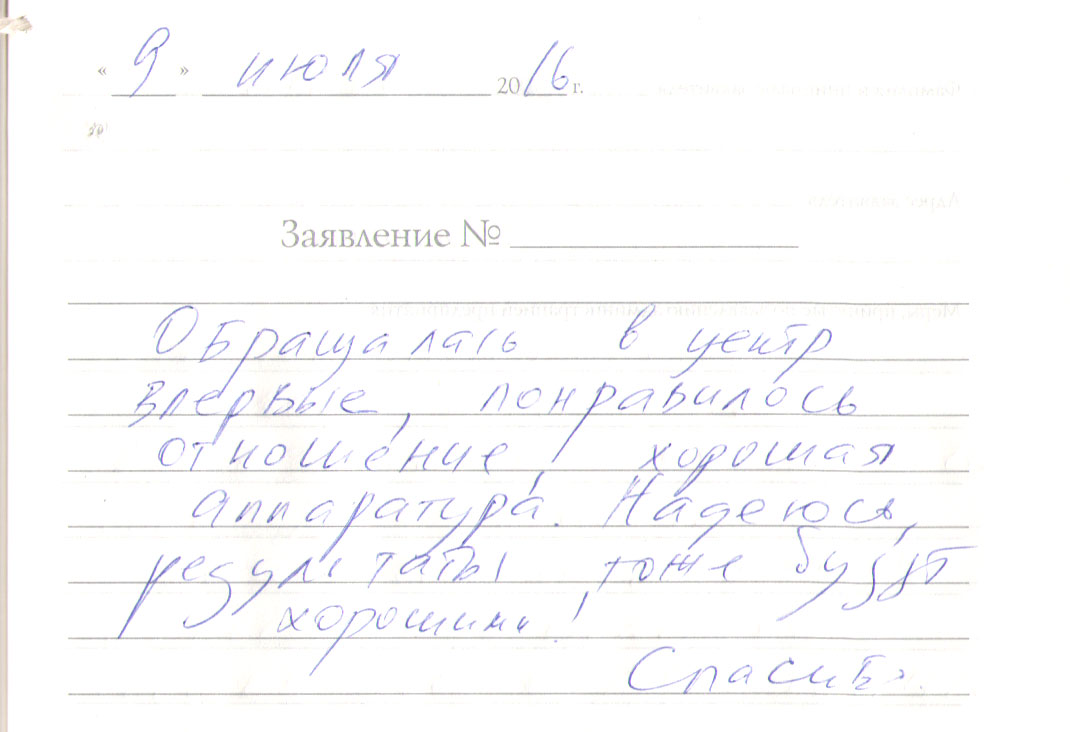 « 9 » июля 2016 г.
Заявление №
Обращалась в центр
впервые, понравилось
отношение, хорошая
аппаратура. Надеюсь,
результаты тоже будут
хорошими!
Спасибо.